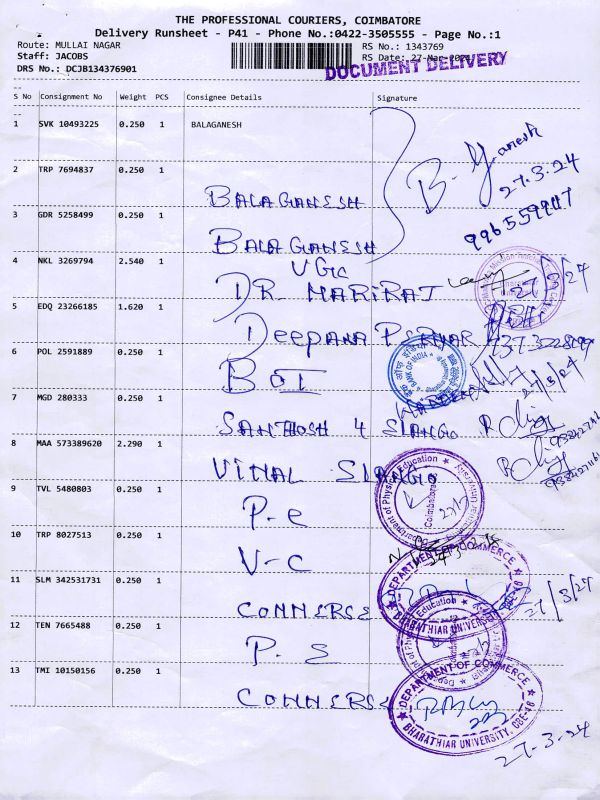 THE PROFESSIONAL COURIERS, COIMBATORE
Delivery Runsheet - P41 - Phone No.:0422-3505555 - Page No.:1
Route: MULLAI NAGAR
RS No.: 1343769
Staff: JACOBS
RS Date: 27-Mar-2024
DRS No.: DCJB134376901
DOCUMENT DELIVERY
S No Consignment No Weight PCS Consignee Details Signature
1 SVK 10493225 0.250 1 BALAGANESH
B. Ganesh
27.3.24
2 TRP 7694837 0.250 1 BALAGANESH
3 GDR 5258499 0.250 1 BALAGANESH
4 NKL 3269794 2.540 1 UGC DR MARIRAJ
27/3/24
5 EDQ 23266185 1.620 1 DEEPANA
6 POL 2591889 0.250 1 BOI
BANK OF INDIA
27/3/24
7 MGD 280333 0.250 1 SANTHOSH 4
8 MAA 573389620 2.290 1 VIMAL
9 TVL 5480803 0.250 1 P.e
Department of Physical Education
Coimbatore
10 TRP 8027513 0.250 1 V-C
11 SLM 342531731 0.250 1 COMMERSE
DEPARTMENT OF COMMERCE
BHARATHIAR UNIVERSITY, CBE-46
27/3/24
12 TEN 7665488 0.250 1 P. E
13 TMI 10150156 0.250 1 COMMERSE
DEPARTMENT OF COMMERCE
BHARATHIAR UNIVERSITY, CBE-46
27-3-24